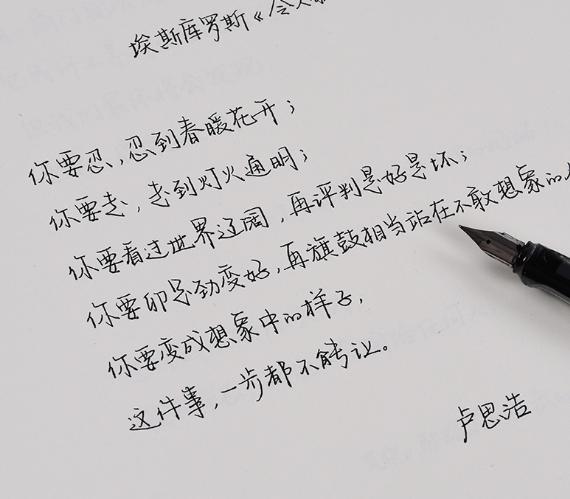 埃斯库罗斯《令人
你要忍,忍到春暖花开;
你要走,走到灯火通明;
你要看过世界辽阔,再评判是好是坏;
你要卯足劲变好,再旗鼓相当站在不敢想象的
你要变成想象中的样子,
这件事,一步都不能让。
卢思浩